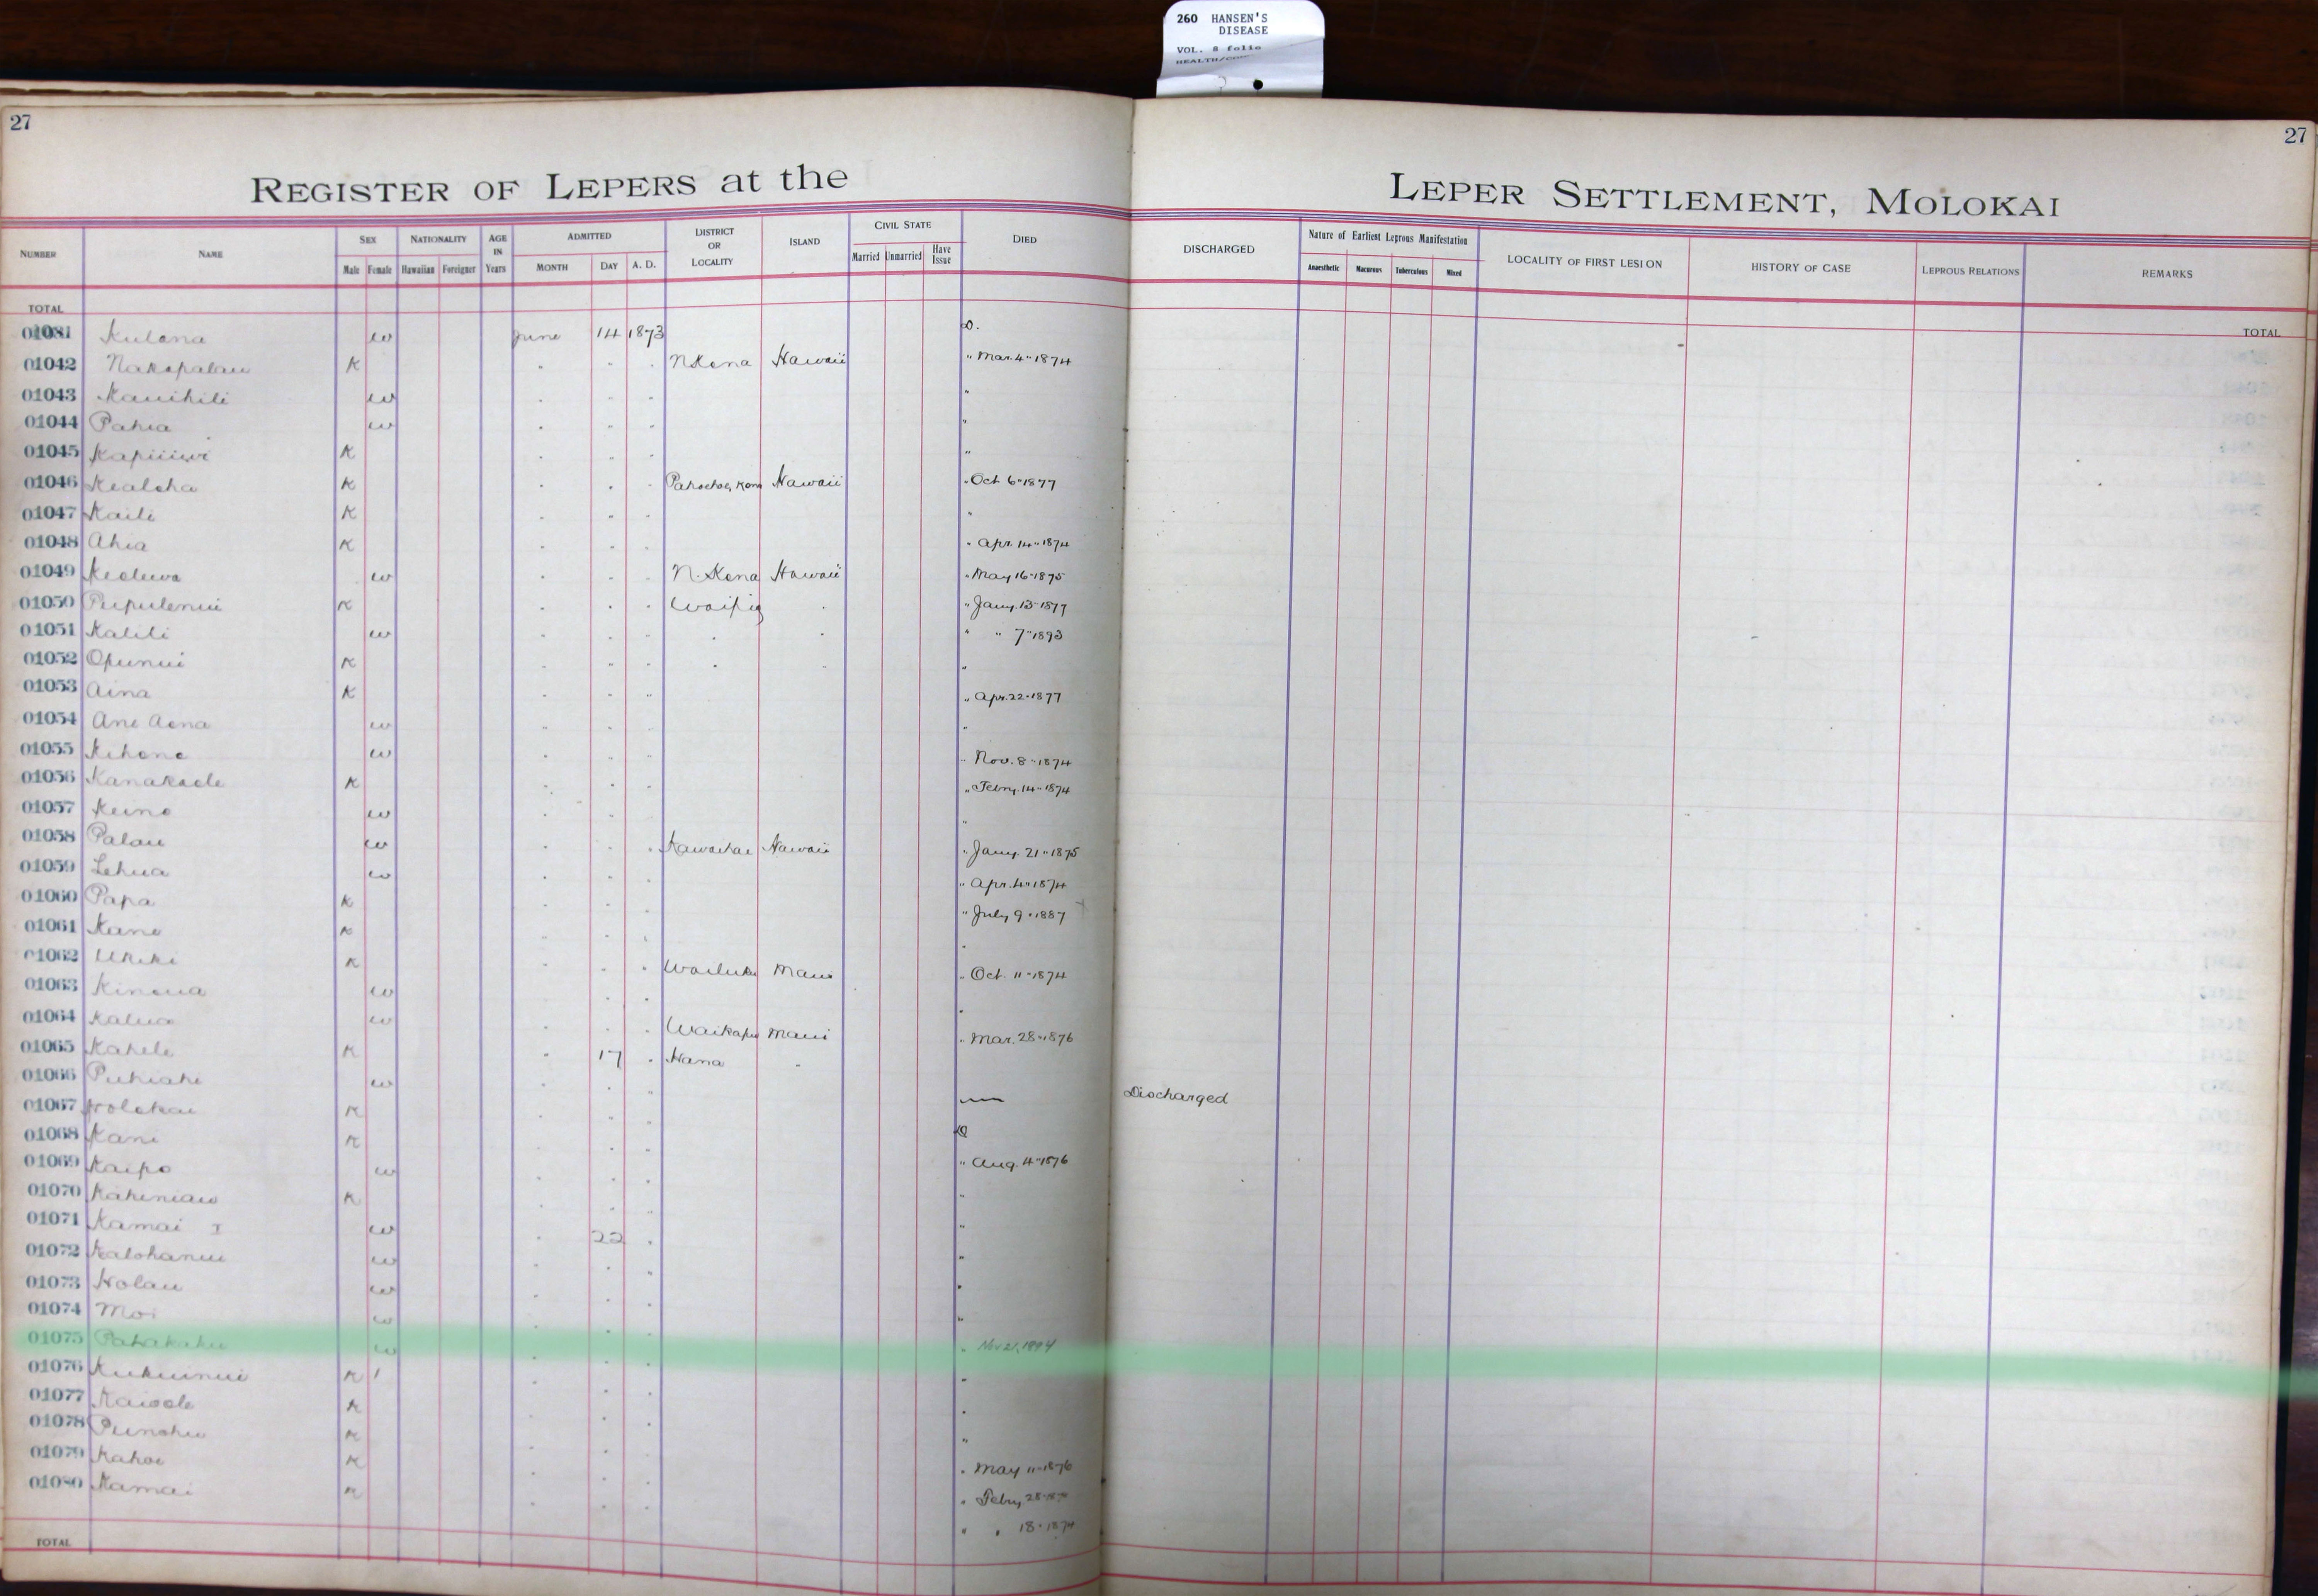 260 HANSEN'S
DISEASE
VOL. 8 folio
27
27
REGISTER OF LEPERS at the LEPER SETTLEMENT, MOLOKAI
NUMBER NAME SEX Male Female NATIONALITY Hawaiian Foreigner AGE IN Years ADMITTED MONTH DAY A. D. DISTRICT OR LOCALITY ISLAND CIVIL STATE Married Unmarried Have Issue DIED DISCHARGED Nature of Earliest Leprous Manifestation Anaesthetic Macurous Tuberculous Mixed LOCALITY OF FIRST LESION HISTORY OF CASE LEPROUS RELATIONS REMARKS
TOTAL TOTAL
Kulana w June 14 1873 D.
01042 Nakapalau K " " " N Kona Hawaii " Mar. 4" 1874
01043 Kauihili w " " " "
01044 Pahia w " " " "
01045 K " " " "
01046 Kealoha K " " " Pahoehoe, Kona Hawaii " Oct 6" 1877
01047 Kaili K " " " "
01048 Ahia K " " " " Apr. 14" 1874
01049 Keoluwa w " " " N. Kona Hawaii " May 16" 1875
01050 Pupulenui K " " " Waipio " " Jany. 13" 1877
01051 Kalili w " " " " " " " 7" 1893
01052 Opunui K " " " " " "
01053 Aina K " " " " Apr. 22" 1877
01054 Ane Aona w " " " "
01055 Kihene w " " " " Nov. 8" 1874
01056 Kanakaole K " " " " Febry. 14" 1874
01057 Keino w " " " "
01058 Palau w " " " Kawaihae Hawaii " Jany. 21" 1875
01059 Lehua w " " " " Apr. 4" 1874
01060 Papa K " " " " July 9" 1887
01061 Kane K " " " "
01062 Ukeke K " " " Wailuku Maui " Oct. 11" 1874
01063 Kinoua w " " " "
01064 Kalua w " " " Waikapu Maui " Mar. 28" 1876
01065 Kahele K " 17 " Hana "
01066 Puhiahi w " " " — Discharged
01067 Holokai K " " " D
01068 Kani K " " " " Aug. 4" 1876
01069 Kaipo w " " " "
01070 Kaheniau K " " " "
01071 Kamai I w " 22 " "
01072 Kalohanui w " " " "
01073 Holau w " " " "
01074 Moi w " " " "
01075 Pahakahu w " " " " Nov 21, 1894
01076 Kukuinui K " " " "
01077 Kaiaole K " " " "
01078 Punohu K " " " " May 11" 1876
01079 Kahoe K " " " " Febry 28"
01080 Kamai K " " " " " 18" 1874
TOTAL